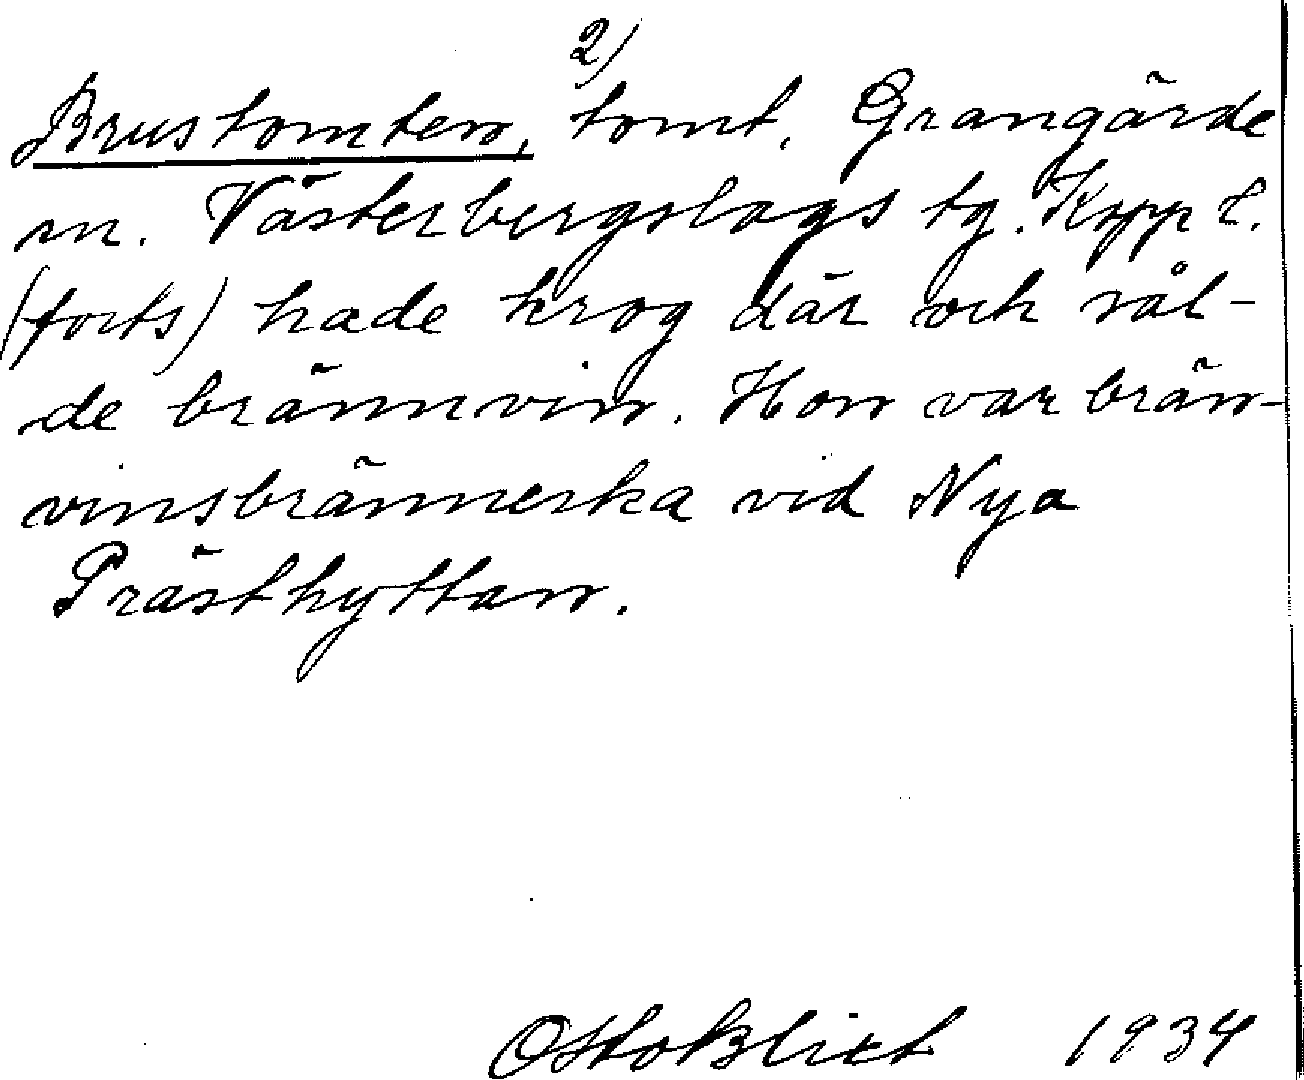 2)
Brustomten, tomt, Grangärde
m. Västerbergslags tg. Kopp l.
(forts) hade krog där och sål-
de brännvin. Hon var brän-
vinsbrännerska vid Nya
Prästhyttan.
Otto Blixt 1934